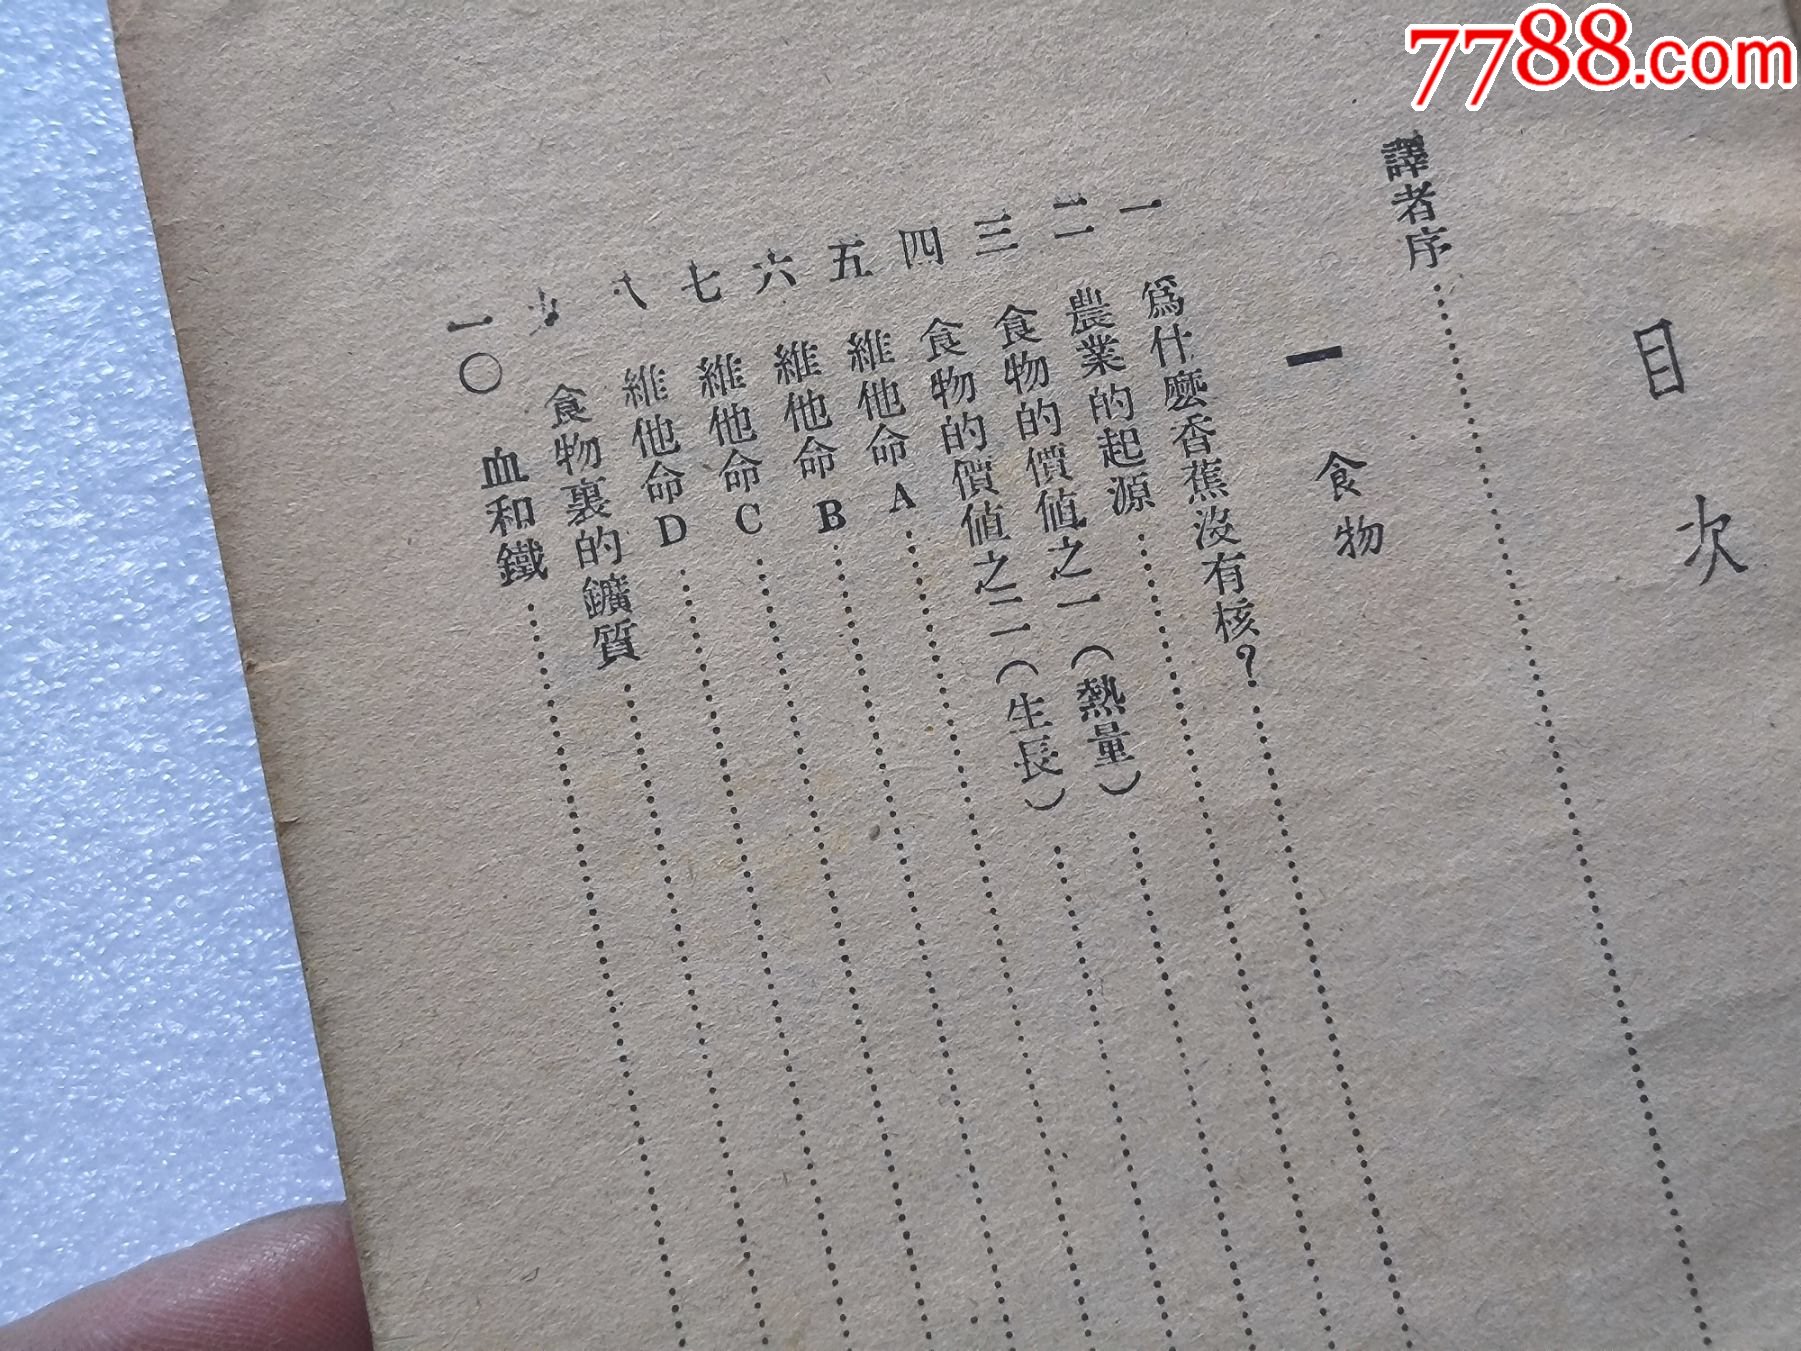 7788.com
目次
譯者序
一 食物
一 為什麼香蕉沒有核？
二 農業的起源
三 食物的價值之一（熱量）
四 食物的價值之二（生長）
五 維他命A
六 維他命B
七 維他命C
八 維他命D
九 食物裏的鑛質
一〇 血和鐵